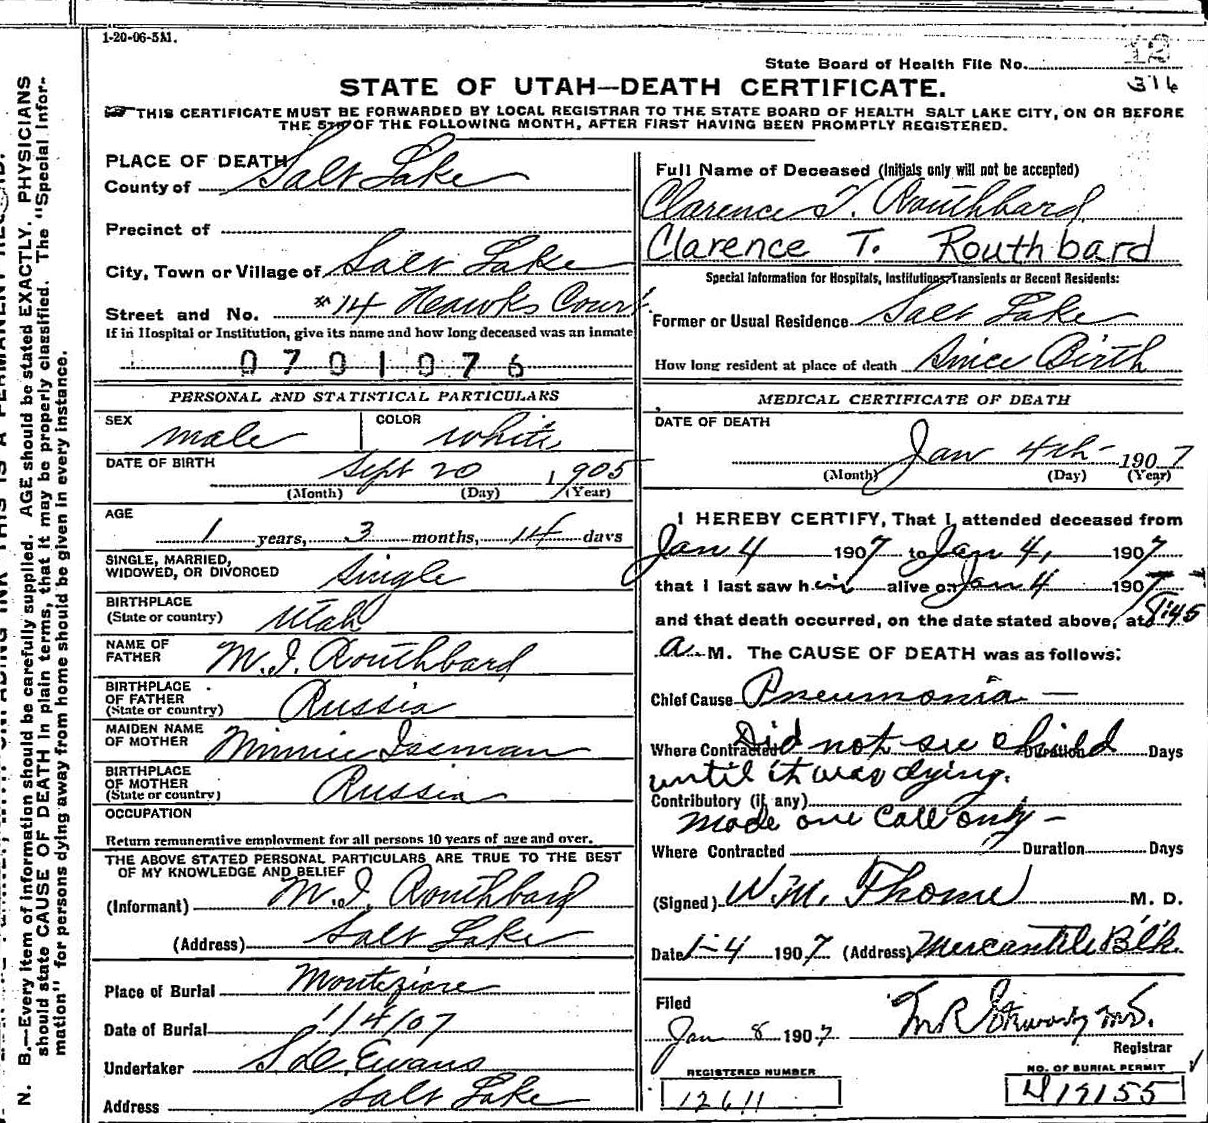 1-20-06-5M.
State Board of Health File No. 12
316
STATE OF UTAH—DEATH CERTIFICATE.
THIS CERTIFICATE MUST BE FORWARDED BY LOCAL REGISTRAR TO THE STATE BOARD OF HEALTH SALT LAKE CITY, ON OR BEFORE
THE 5TH OF THE FOLLOWING MONTH, AFTER FIRST HAVING BEEN PROMPTLY REGISTERED.
PLACE OF DEATH
County of Salt Lake
Precinct of
City, Town or Village of Salt Lake
Street and No. #14 Heawks Court
If in Hospital or Institution, give its name and how long deceased was an inmate
0701076
PERSONAL AND STATISTICAL PARTICULARS
SEX male COLOR white
DATE OF BIRTH Sept 20 1905
(Month) (Day) (Year)
AGE
1 years, 3 months, 14 days
SINGLE, MARRIED,
WIDOWED, OR DIVORCED Single
BIRTHPLACE
(State or country) Utah
NAME OF
FATHER M. I. Routhbard
BIRTHPLACE
OF FATHER
(State or country) Russia
MAIDEN NAME
OF MOTHER Minnie Isaman
BIRTHPLACE
OF MOTHER
(State or country) Russia
OCCUPATION
Return remunerative employment for all persons 10 years of age and over.
THE ABOVE STATED PERSONAL PARTICULARS ARE TRUE TO THE BEST
OF MY KNOWLEDGE AND BELIEF
(Informant) M. I. Routhbard
(Address) Salt Lake
Place of Burial Montefiore
Date of Burial 1/4/07
Undertaker S. D. Evans
Address Salt Lake
Full Name of Deceased (Initials only will not be accepted)
Clarence T. Routhbard
Clarence T. Routhbard
Special Information for Hospitals, Institutions, Transients or Recent Residents:
Former or Usual Residence Salt Lake
How long resident at place of death Since Birth
MEDICAL CERTIFICATE OF DEATH
DATE OF DEATH
Jan 4th 1907
(Month) (Day) (Year)
I HEREBY CERTIFY, That I attended deceased from
Jan 4 1907 to Jan 4, 1907
that I last saw him alive on Jan 4 1907
and that death occurred, on the date stated above, at 8:45
a M. The CAUSE OF DEATH was as follows:
Chief Cause Pneumonia —
Where Contracted Duration Days
Did not see child
until it was dying.
Contributory (if any)
made one call only —
Where Contracted Duration Days
(Signed) W.M. Thome M. D.
Date 1-4 1907 (Address) Mercantile Blk.
Filed
Jan 8 1907
Registrar
REGISTERED NUMBER
12611
NO. OF BURIAL PERMIT
19155
N. B.—Every item of information should be carefully supplied. AGE should be stated EXACTLY. PHYSICIANS
should state CAUSE OF DEATH in plain terms, that it may be properly classified. The "Special Infor-
mation" for persons dying away from home should be given in every instance.